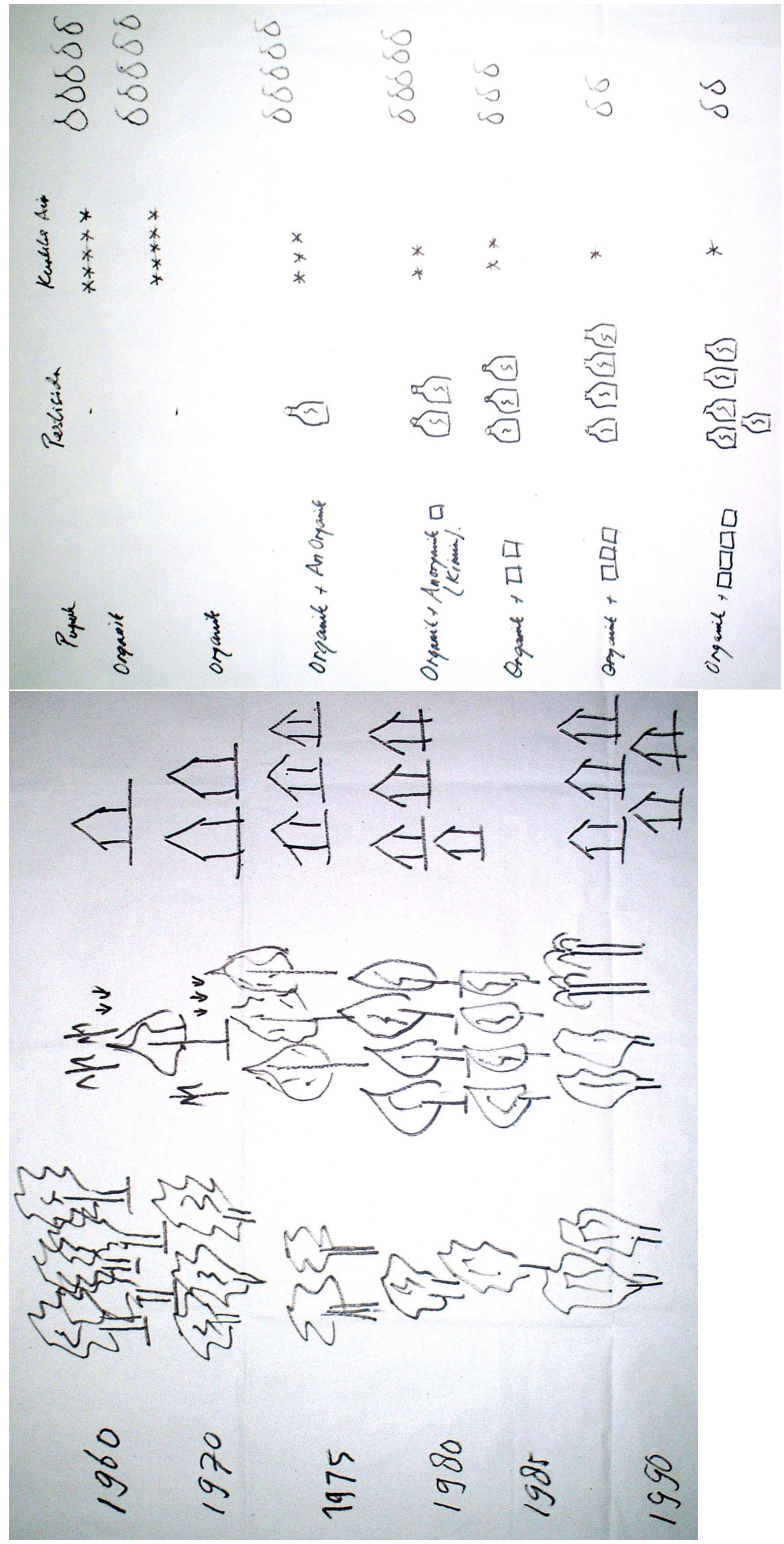 1960
1970
1975
1980
1985
1990
Pupuk Pestisida Kualitas Air
Organik
Organik
Organik + An Organik
Organik + Anorganik
(Kimia).
Organik +
Organik +
Organik +